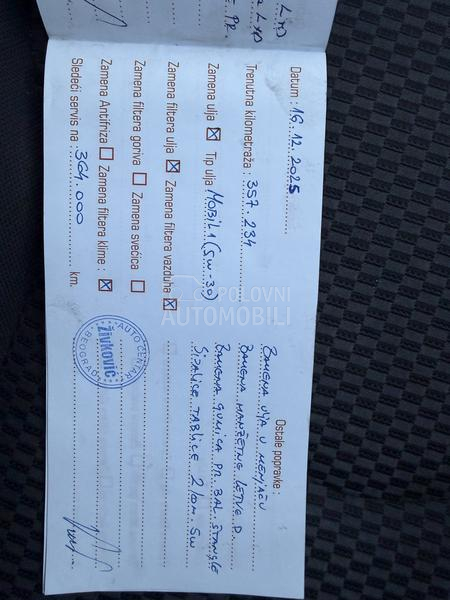 Datum : 16.12.2025
Trenutna kilometraža : 357.234
Zamena ulja ☒ Tip ulja MOBIL 1 (5W-30)
Zamena filtera ulja ☒ Zamena filtera vazduha ☒
Zamena filtera goriva ☐ Zamena svećica ☐
Zamena Antifriza ☐ Zamena filtera klime : ☒
Sledeći servis na : 364.000 km.
Ostale popravke :
ZAMENA ULJA U MENJAČU
ZAMENA MANŽETNE LETVE D.
ZAMENA GUMICA PR. BAL. ŠTANGLE
SIJALICE TABLICE 2 kom. 5W
AUTO CENTAR
Živković
BEOGRAD
POLOVNI
AUTOMOBILI